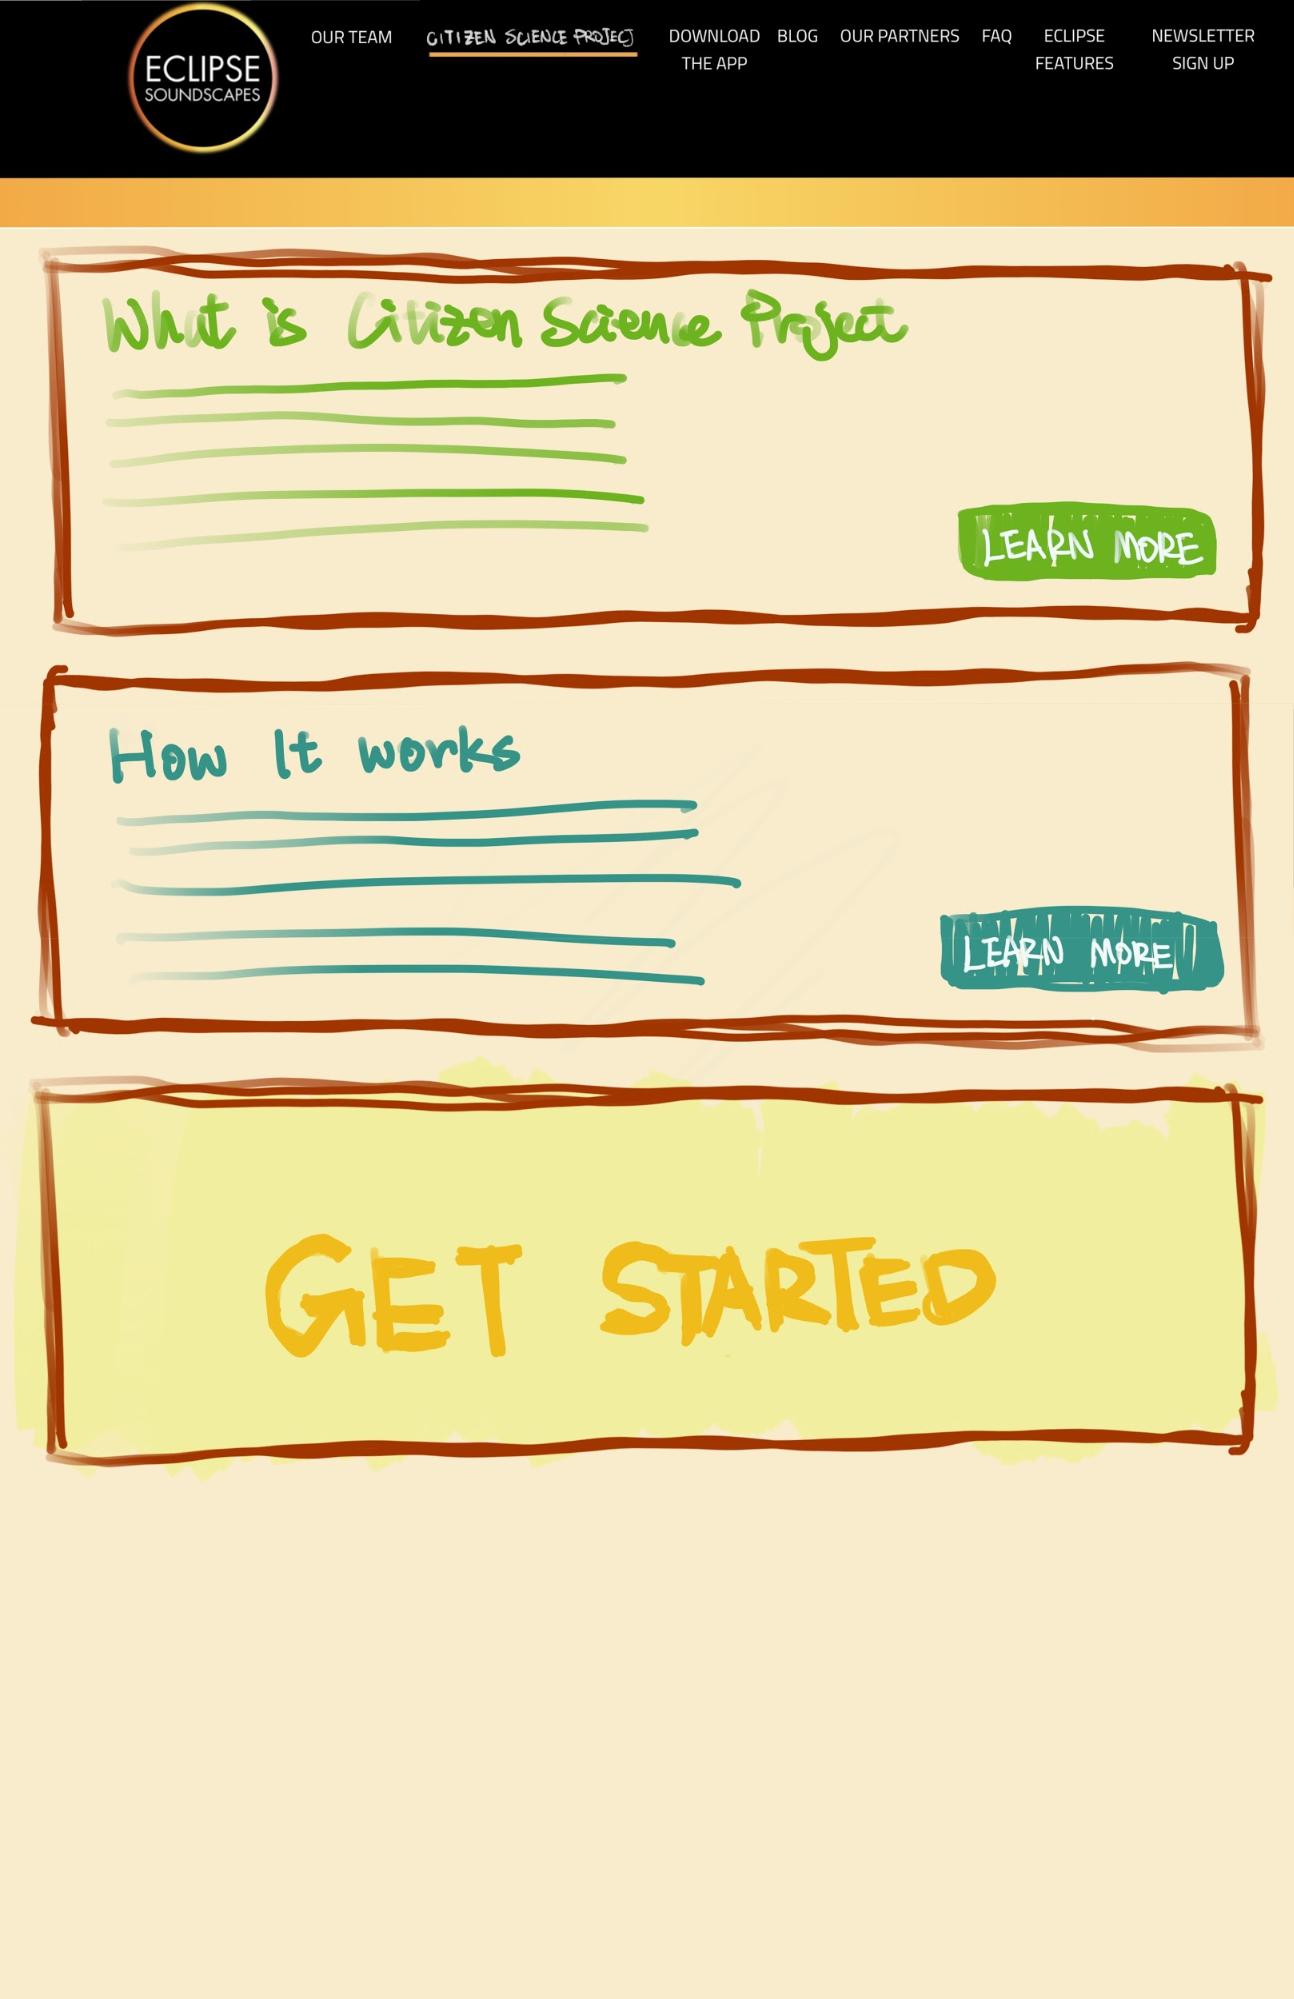 ECLIPSE
SOUNDSCAPES
OUR TEAM
CITIZEN SCIENCE PROJECJ
DOWNLOAD
THE APP
BLOG
OUR PARTNERS
FAQ
ECLIPSE
FEATURES
NEWSLETTER
SIGN UP
What is Citizen Science Project
LEARN MORE
How It works
LEARN MORE
GET STARTED